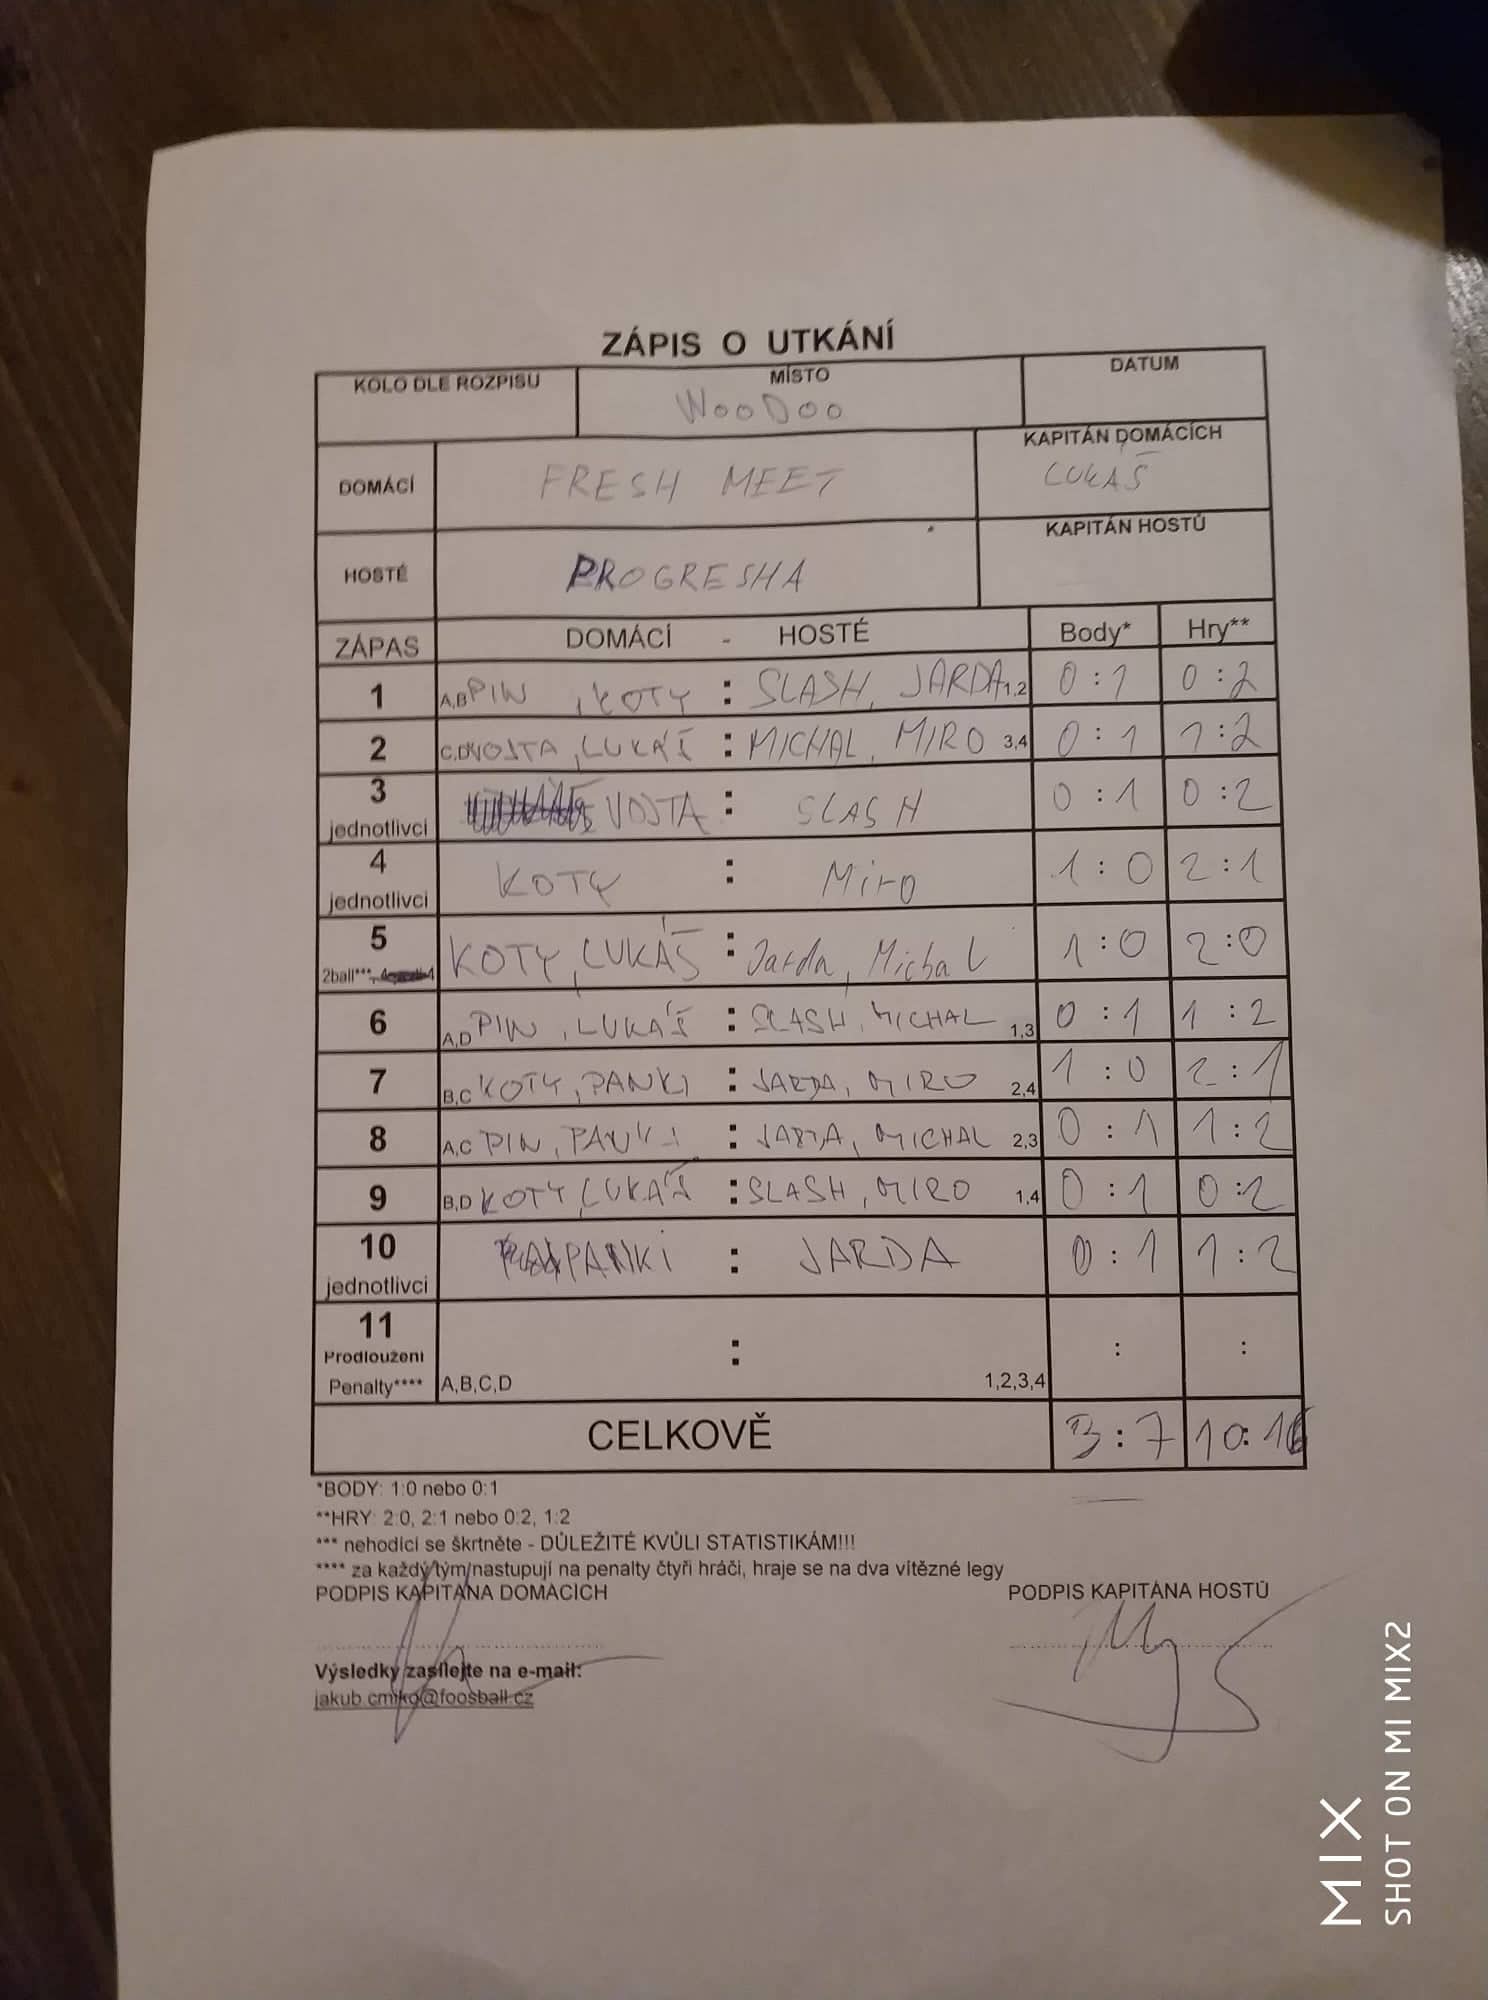 ZÁPIS O UTKÁNÍ
KOLO DLE ROZPISU MÍSTO DATUM
WooDoo
DOMÁCÍ FRESH MEET KAPITÁN DOMÁCÍCH
LUKÁŠ
HOSTÉ PROGRESHA KAPITÁN HOSTŮ
ZÁPAS DOMÁCÍ - HOSTÉ Body* Hry**
1 A,B PIN , KOTY : SLASH, JARDA 1,2 0 : 1 0 : 2
2 C,D VOJTA , LUKÁŠ : MICHAL, MIRO 3,4 0 : 1 1 : 2
3 jednotlivci VOJTA : SLASH 0 : 1 0 : 2
4 jednotlivci KOTY : Miro 1 : 0 2 : 1
5 2ball*** KOTY, LUKÁŠ : Jarda, Michal 1 : 0 2 : 0
6 A,D PIN , LUKÁŠ : SLASH, MICHAL 1,3 0 : 1 1 : 2
7 B,C KOTY, PANKI : JARDA, MIRO 2,4 1 : 0 2 : 1
8 A,C PIN, PANKI : JARDA, MICHAL 2,3 0 : 1 1 : 2
9 B,D KOTY, LUKÁŠ : SLASH, MIRO 1,4 0 : 1 0 : 2
10 jednotlivci PANKI : JARDA 0 : 1 1 : 2
11 Prodloužení Penalty**** A,B,C,D : 1,2,3,4 : :
CELKOVĚ 3 : 7 10 : 16
*BODY: 1:0 nebo 0:1
**HRY: 2:0, 2:1 nebo 0:2, 1:2
*** nehodící se škrtněte - DŮLEŽITÉ KVŮLI STATISTIKÁM!!!
**** za každý tým nastupují na penalty čtyři hráči, hraje se na dva vítězné legy
PODPIS KAPITÁNA DOMÁCÍCH PODPIS KAPITÁNA HOSTŮ
Výsledky zasílejte na e-mail:
jakub.cmiko@foosball.cz
MIX
SHOT ON MI MIX2